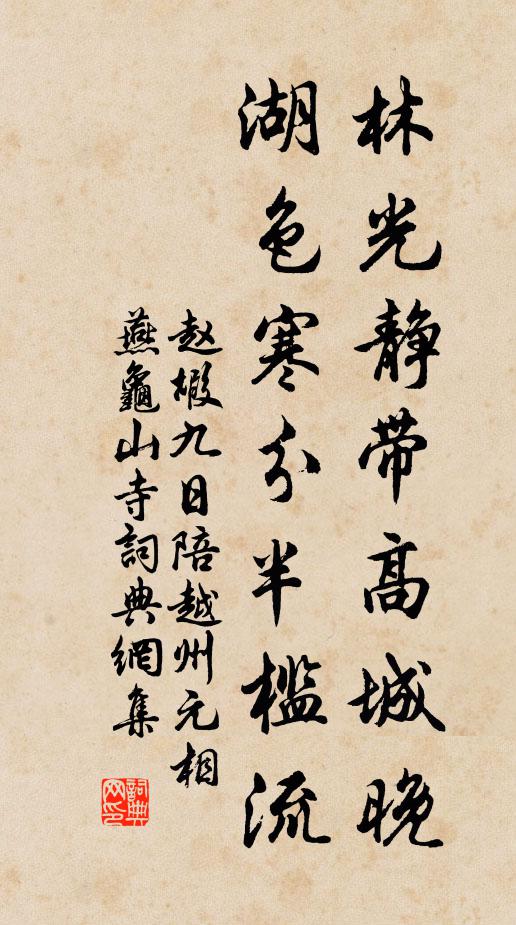 林光静带高城晚
湖色寒分半槛流
赵嘏九日陪越州元相
燕龜山寺詞典網集
詞典网印